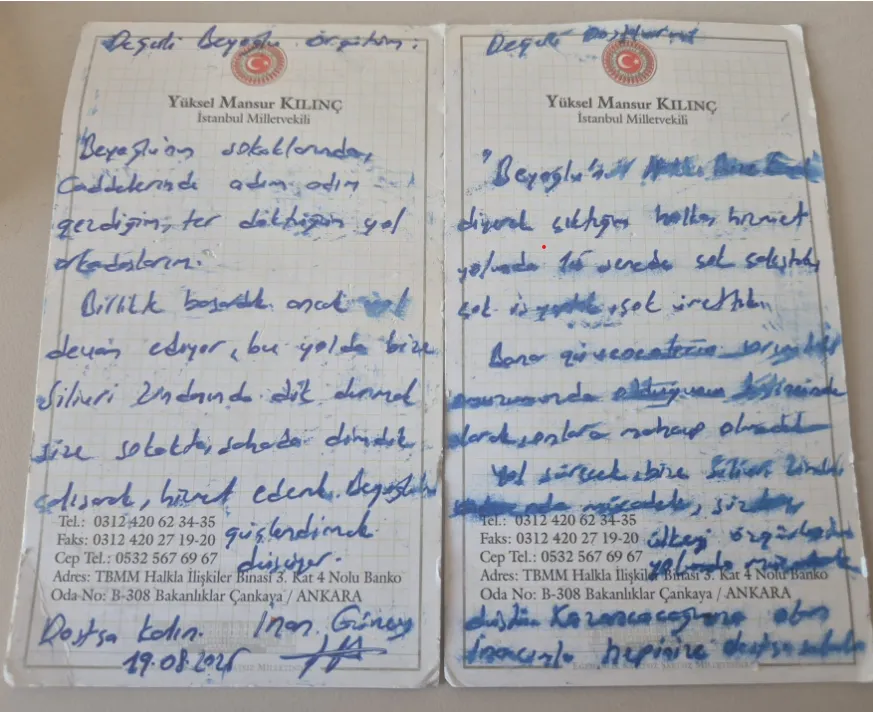 Değerli Beyoğlu örgütüm:
Yüksel Mansur KILINÇ
İstanbul Milletvekili
"Beyoğlu'nun sokaklarında,
caddelerinde adım adım
gezdiğim, ter döktüğüm yol
arkadaşlarım.
Birlikte başardık ancak yol
devam ediyor, bu yolda bize
Silivri zindanında dik durmak
size sokakta, sahada dimdik
çalışarak, hizmet ederek Beyoğlu'nu
güçlendirmek
düşüyor.
Tel.: 0312 420 62 34-35
Faks: 0312 420 27 19-20
Cep Tel.: 0532 567 69 67
Adres: TBMM Halkla İlişkiler Binası 3. Kat 4 Nolu Banko
Oda No: B-308 Bakanlıklar Çankaya / ANKARA
Dostça kalın. İnan Güney
19.08.2025
Değerli Dostlarım
Yüksel Mansur KILINÇ
İstanbul Milletvekili
"Beyoğlu'n
diyerek çıktığım halka hizmet
yolunda senede çok çalıştık,
çok iş yaptık, çok ürettik.
Bana güvenenlerin
omuzumda olduğunun bilincinde
olarak, onlara mahcup olmadık
Yol sürecek, bize Silivri zindan
nda mücadele, sizlere
ülkeyi özgürleştirme
yolunda mücadele
Tel.: 0312 420 62 34-35
Faks: 0312 420 27 19-20
Cep Tel.: 0532 567 69 67
Adres: TBMM Halkla İlişkiler Binası 3. Kat 4 Nolu Banko
Oda No: B-308 Bakanlıklar Çankaya / ANKARA
düştü. Kazanacağımıza olan
inancımla hepinize dostça